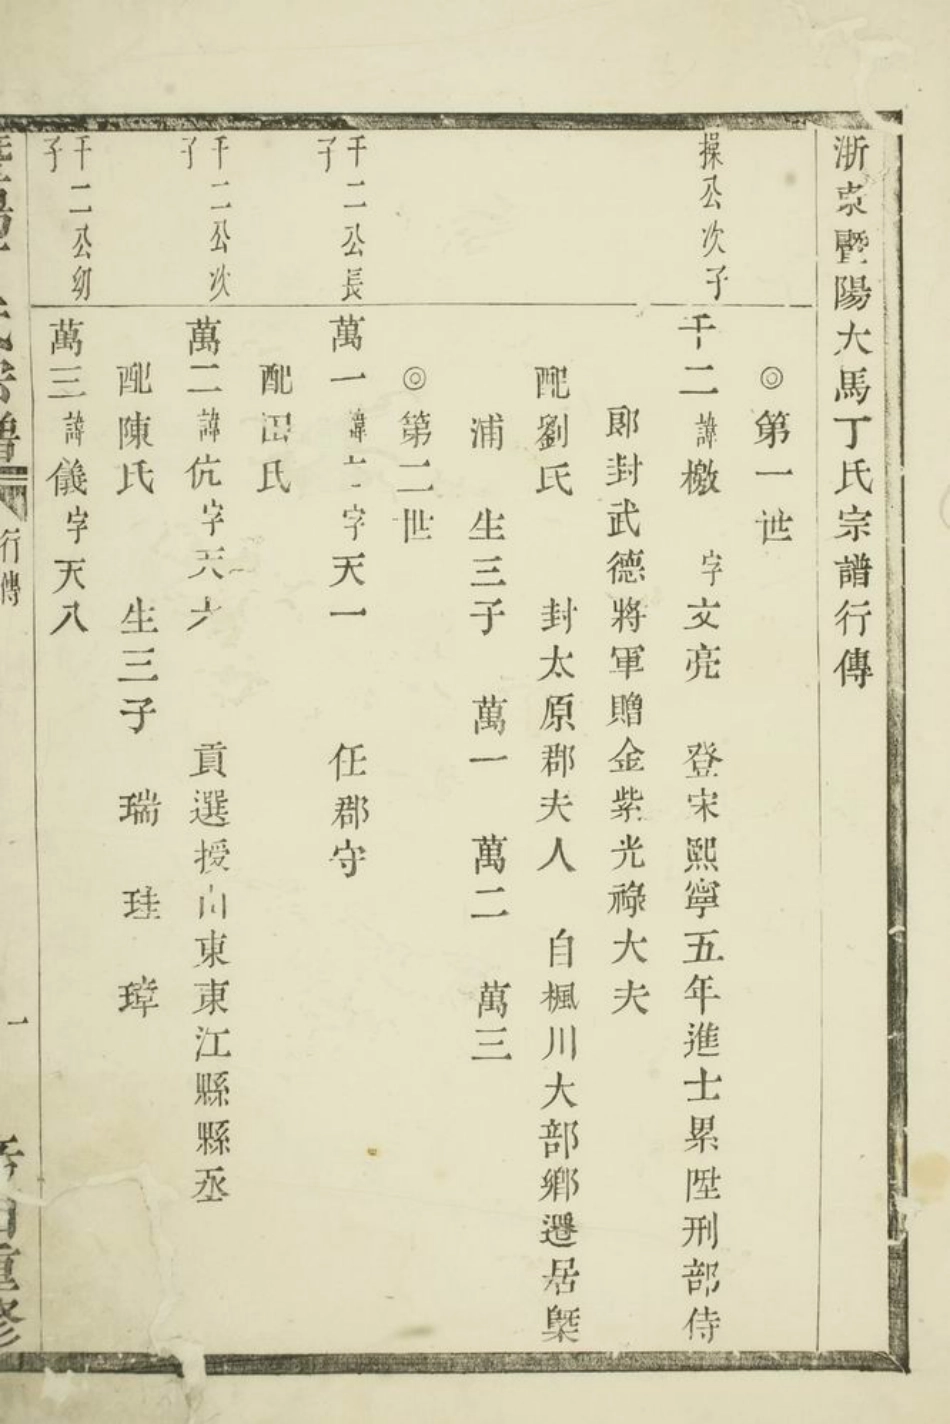 浙東暨陽大馬丁氏宗譜行傳
◎第一世
操公次子
千二諱檄 字文亮 登宋熙寧五年進士累陞刑部侍
郎封武德將軍贈金紫光祿大夫
配劉氏 封太原郡夫人 自楓川大部鄉遷居槩
浦 生三子 萬一 萬二 萬三
◎第二世
千二公長子
萬一諱 字天一 任郡守
配 氏
千二公次子
萬二諱伉字天六 貢選授山東東江縣縣丞
配陳氏 生三子 瑞 珪 璋
千二公幼子
萬三諱儀字天八
行傳
一
重修